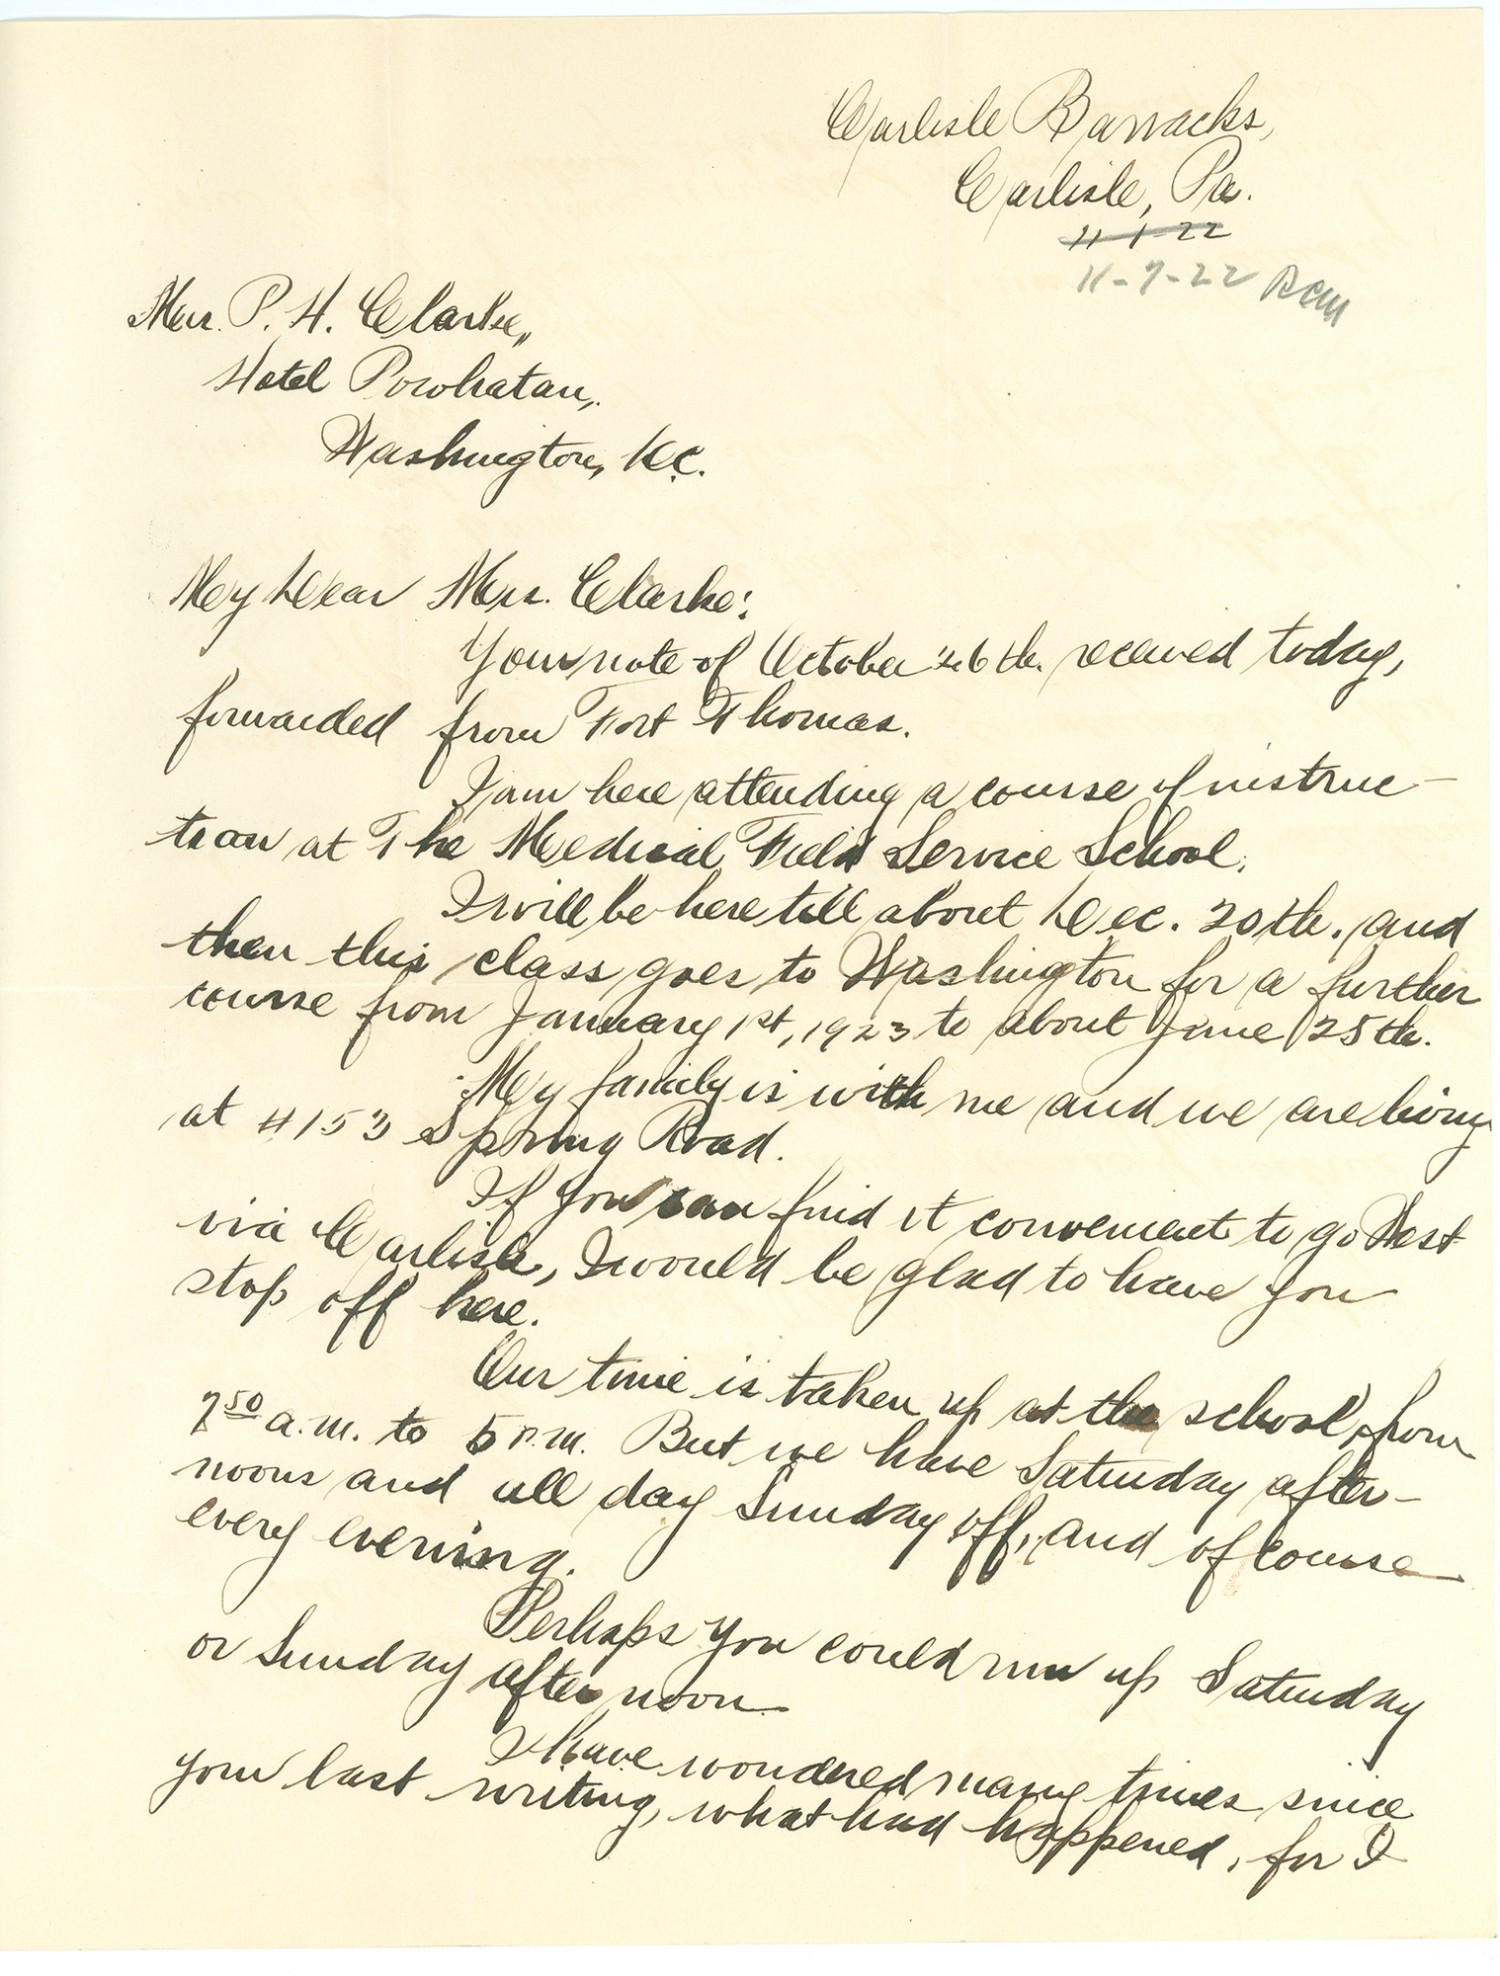 Carlisle Barracks,
Carlisle, Pa.
11-1-22
11-7-22 BCM
Mrs. P. H. Clarke,
Hotel Powhatan,
Washington, D.C.
My Dear Mrs. Clarke:
Your note of October 26th. received today,
forwarded from Fort Thomas.
I am here attending a course of instruc-
tion at The Medical Field Service School.
I will be here till about Dec. 20th. and
then this class goes to Washington for a further
course from January 1st, 1923 to about June 25th.
My family is with me and we are living
at #153 Spring Road.
If you can find it convenient to go West
via Carlisle, I would be glad to have you
stop off here.
Our time is taken up at the school, from
7 50 a.m. to 5 P.M. But we have Saturday after-
noons and all day Sunday off, and of course
every evening.
Perhaps you could run up Saturday
or Sunday afternoon.
I have wondered many times since
your last writing, what had happened, for I